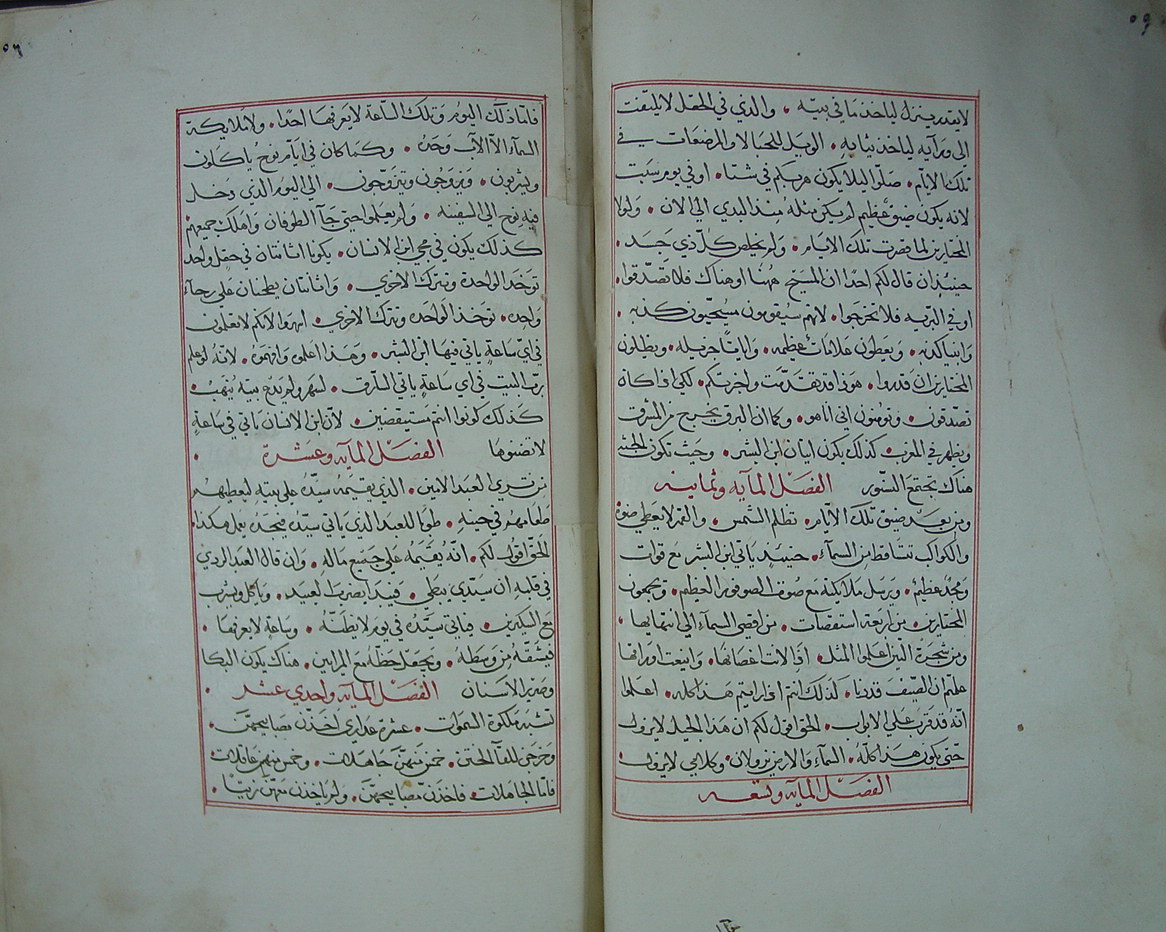 لايقدر ينزل لياخد ما في بيته • والذي في الحقل لا يلتفت
الى ورآيه لياخد ثيابه • الويل للحبالا والمرضعات في
تلك الايام • صلوا ليلا يكون هربكم في شتا • او في يوم سبت
لانه يكون ضيق عظيم لم يكن مثله منذ البدي الي الان • ولولا
المختارين لما قصرت تلك الايام • ولم يخلص كل ذي جسد •
حينيذ ان قال لكم احدا ان المسيح ههنا او هناك فلا تصدقوا
او في البريه فلا تخرجوا • لانهم سيقومون مسيحيون كدبه •
وانبيا كدبه • ويعطون علامات عظيمه • وايات جزيله • ويظلون
المختارين ان قدروا • هوذا قد تقدمت واخبرتكم • لكي اذا كان
تصدقون • وتومنون اني انا هو • وكما ان البرق يخرج من المشرق
ويظهر في المغرب كذلك يكون اتيان ابن البشر • وحيث تكون الجثه
هناك تجتمع النسور الفصل المآيه وثمانيه
ومن بعد ضيق تلك الايام • تظلم الشمس • والقمر لا يعطي ضوه
والكواكب تتساقط من السمآء • حينيذ ياتي ابن البشر مع قوات
ومجد عظيم • ويرسل ملايكته مع صوت الصوفور العظيم • ويجمعون
المختارين من اربعة استقصات • من اقصي السمآء الي انتهايها •
ومن شجرة التين اعلموا المثل • اذا لانت اغصانها • واينعت اوراقها
علمتم ان الصيف قد دنا • كذلك انتم اذا رايتم هذا كله • اعلموا
انه قد قرب علي الابواب • الحق اقول لكم ان هذا الجيل لا يزول
حتي يكون هذا كله • السمآء والارض يزولان • وكلامي لا يزول
الفصل المآيه وتسعه
فاما ذلك اليوم وتلك الساعة لا يعرفها احدا • ولا ملايكة
السمآء الا الاب وحده • وكما كان في ايام نوح ياكلون
ويشربون • ويزوجون ويتزوجون • الي اليوم الدي دخل
فيه نوح الي السفينه • ولم يعلموا حتي جآ الطوفان واهلك جميعهم
كذلك يكون في مجي ابن الانسان • يكونا اثنتان في حقل واحد
توخد الواحدة وتترك الاخري • واثنتان يطحنان علي رحآء
واحده • توخد الواحده وتترك الاخري • اسهروا لانكم لا تعلمون
في اي ساعة ياتي فيها ابن البشر • وهذا اعلموه وافهموه • لانه لو علم
رب البيت في اي ساعة ياتي السارق • لسهر ولم يدع بيته ينهب
كذلك كونوا انتم مستيقضين • لان ابن الانسان ياتي في ساعة
لا تضنوها الفصل المآيه وعشرة •
من تري العبد الامين • الدي يقيمه سيده علي بيته ليعطيهم
طعامهم في حينه • طوبا للعبد الدي ياتي سيده فيجده يعمل هكذا
الحق اقول لكم • انه يقيمه علي جميع ماله • وان قال العبد الردي
في قلبه ان سيدي يبطي • فيبدا يضرب العبيد • وياكل ويشرب
مع السكيرين • فياتي سيده في يوم لا يظنه • وساعة لا يعرفها •
فيشقه من وسطه • ويجعل حظه مع المرايين • هناك يكون البكا
وصرير الاسنان الفصل المآيه واحدي عشر •
تشبه ملكوة السموات • عشرة عداري اخذن مصابيحهن •
وخرجن للقآ الختن • خمس منهن جاهلات • وخمس منهن عاقلات
فاما الجاهلات • فاخذن مصابيحهن • ولم ياخذن معهن زيتا •